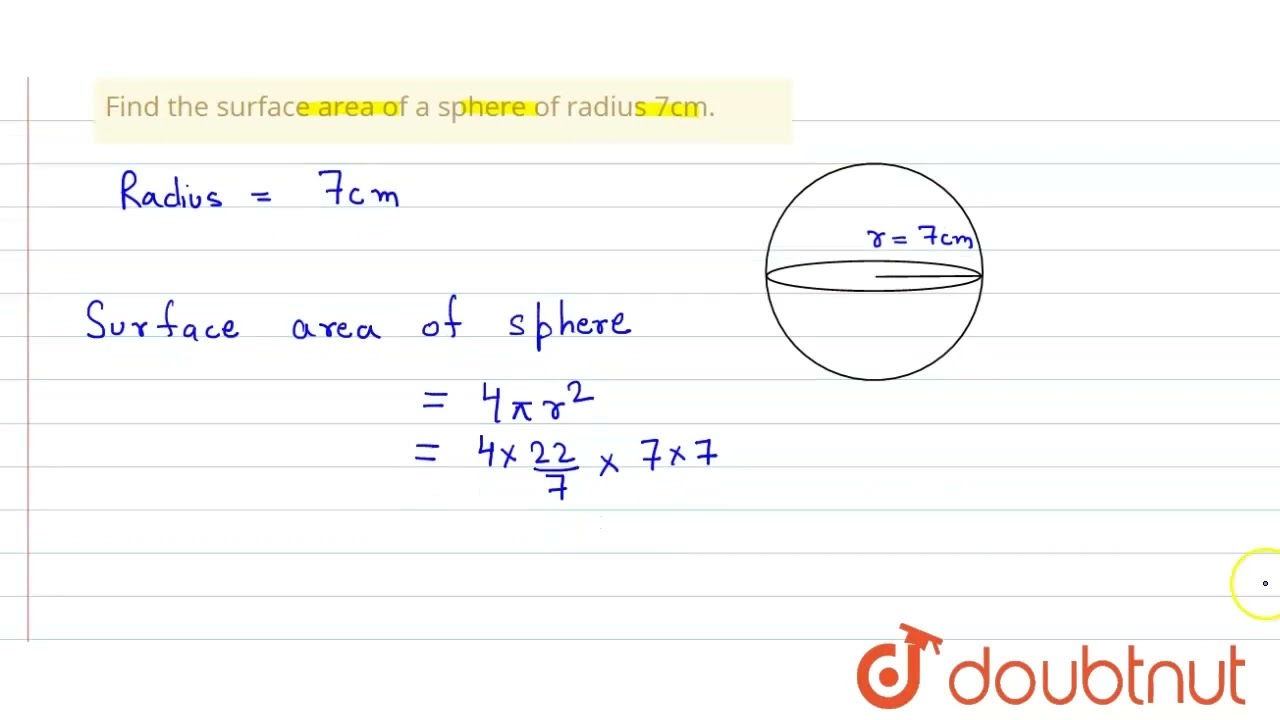 Find the surface area of a sphere of radius 7cm.
Radius = 7cm
r = 7cm
Surface area of sphere
= 4πr²
= 4 × 22/7 × 7 × 7
doubtnut